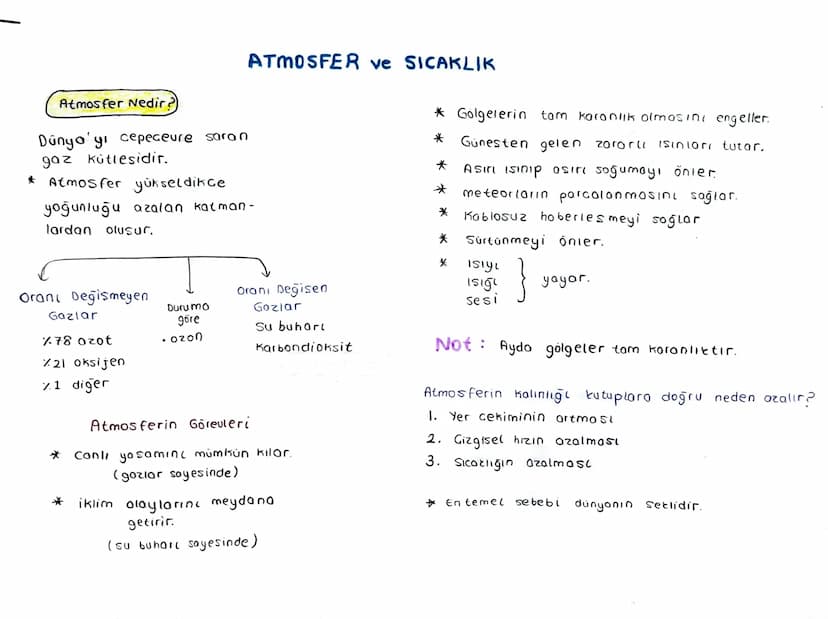 ATMOSFER ve SICAKLIK
Atmosfer Nedir?
Dünya'yı çepeçevre saran
gaz kütlesidir.
* Atmosfer yükseldikçe
yoğunluğu azalan katman-
lardan oluşur.
Oranı Değişmeyen
Gazlar
%78 azot
%21 oksijen
%1 diğer
Duruma
göre
• ozon
Oranı Değişen
Gazlar
Su buharı
Karbondioksit
Atmosferin Görevleri
* Canlı yaşamını mümkün kılar.
(gazlar sayesinde)
* iklim olaylarını meydana
getirir.
(su buharı sayesinde)
* Gölgelerin tam karanlık olmasını engeller.
* Güneşten gelen zararlı ışınları tutar.
* Aşırı ısınıp aşırı soğumayı önler.
* meteorların parçalanmasını sağlar.
* Kablosuz haberleşmeyi sağlar
* Sürtünmeyi önler.
* ısıyı
ışığı
sesi
} yayar.
Not : Ayda gölgeler tam karanlıktır.
Atmosferin kalınlığı kutuplara doğru neden azalır?
1. Yer çekiminin artması
2. Çizgisel hızın azalması
3. Sıcaklığın azalması
* En temel sebebi dünyanın şeklidir.